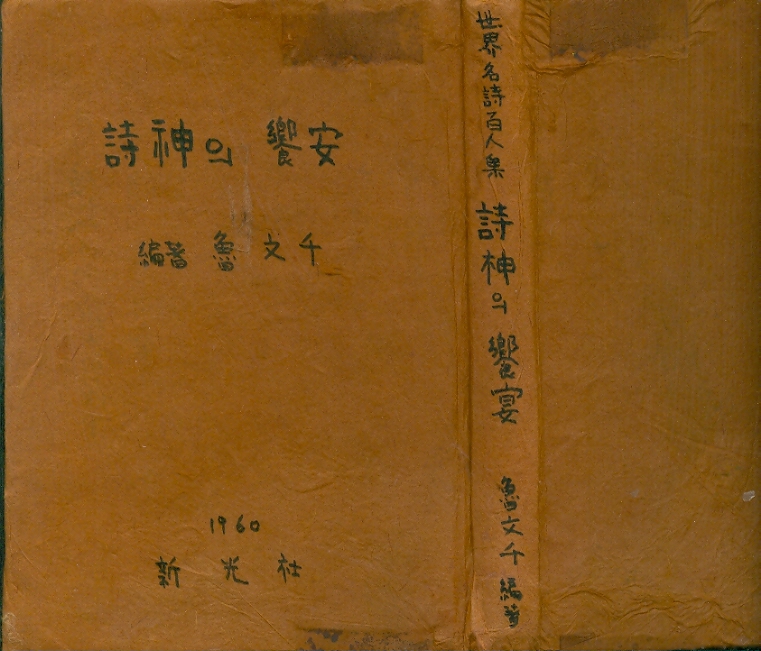 詩神의 饗安
編著 魯文千
1960
新光社
世界名詩百人集 詩神의 饗宴 魯文千 編著